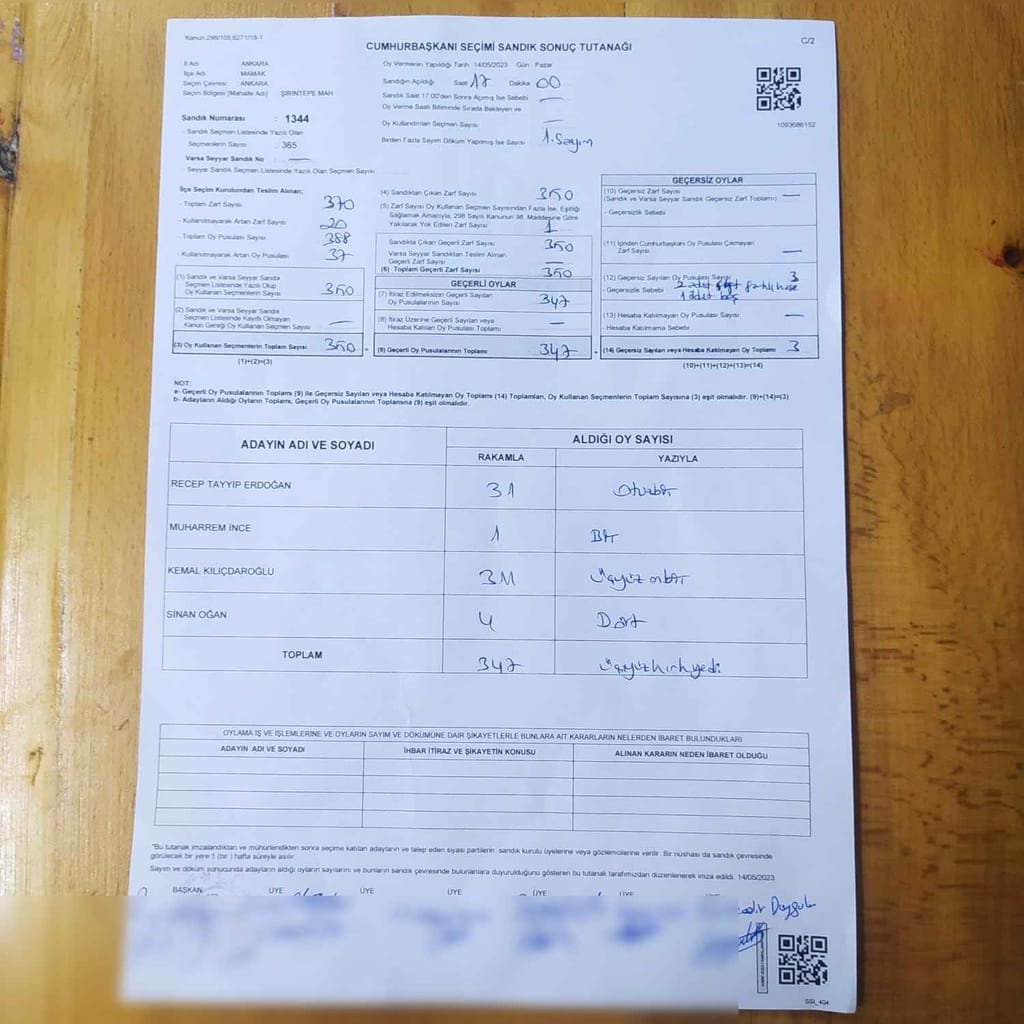 Kanun.298/105,6271/18-1
C/2
CUMHURBAŞKANI SEÇİMİ SANDIK SONUÇ TUTANAĞI
İl Adı : ANKARA
İlçe Adı : MAMAK
Seçim Çevresi : ANKARA
Seçim Bölgesi (Mahalle Adı) : ŞİRİNTEPE MAH
Sandık Numarası : 1344
- Sandık Seçmen Listesinde Yazılı Olan
Seçmenlerin Sayısı : 365
Varsa Seyyar Sandık No : —
- Seyyar Sandık Seçmen Listesinde Yazılı Olan Seçmen Sayısı :
Oy Vermenin Yapıldığı Tarih: 14/05/2023 Gün: Pazar
Sandığın Açıldığı Saat 17 Dakika 00
Sandık Saat 17:00'den Sonra Açılmış İse Sebebi —
Oy Verme Saati Bitiminde Sırada Bekleyen ve
Oy Kullandırılan Seçmen Sayısı —
Birden Fazla Sayım Döküm Yapılmış İse Sayısı 1. Sayım
1093686152
İlçe Seçim Kurulundan Teslim Alınan;
- Toplam Zarf Sayısı 370
- Kullanılmayarak Artan Zarf Sayısı 20
- Toplam Oy Pusulası Sayısı 388
- Kullanılmayarak Artan Oy Pusulası 37
(1) Sandık ve Varsa Seyyar Sandık
Seçmen Listesinde Yazılı Olup
Oy Kullanan Seçmenlerin Sayısı 350
(2) Sandık ve Varsa Seyyar Sandık
Seçmen Listesinde Kayıtlı Olmayan
Kanun Gereği Oy Kullanan Seçmen Sayısı —
(3) Oy Kullanan Seçmenlerin Toplam Sayısı 350 =
(1)+(2)=(3)
(4) Sandıktan Çıkan Zarf Sayısı 350
(5) Zarf Sayısı Oy Kullanan Seçmen Sayısından Fazla İse, Eşitliği
Sağlamak Amacıyla; 298 Sayılı Kanunun 98. Maddesine Göre
Yakılarak Yok Edilen Zarf Sayısı 1
Sandıkta Çıkan Geçerli Zarf Sayısı 350
Varsa Seyyar Sandıktan Teslim Alınan
Geçerli Zarf Sayısı —
(6) Toplam Geçerli Zarf Sayısı 350
GEÇERLİ OYLAR
(7) İtiraz Edilmeksizin Geçerli Sayılan
Oy Pusulalarının Sayısı 347
(8) İtiraz Üzerine Geçerli Sayılan veya
Hesaba Katılan Oy Pusulası Toplamı —
(9) Geçerli Oy Pusulalarının Toplamı 347 +
GEÇERSİZ OYLAR
(10) Geçersiz Zarf Sayısı —
(Sandık ve Varsa Seyyar Sandık Geçersiz Zarf Toplamı)
- Geçersizlik Sebebi
(11) İçinden Cumhurbaşkanı Oy Pusulası Çıkmayan
Zarf Sayısı —
(12) Geçersiz Sayılan Oy Pusulası Sayısı 3
- Geçersizlik Sebebi 2 adet
1 adet boş
(13) Hesaba Katılmayan Oy Pusulası Sayısı —
- Hesaba Katılmama Sebebi
(14) Geçersiz Sayılan veya Hesaba Katılmayan Oy Toplamı 3
(10)+(11)+(12)+(13)=(14)
NOT:
a- Geçerli Oy Pusulalarının Toplamı (9) ile Geçersiz Sayılan veya Hesaba Katılmayan Oy Toplamı (14) Toplamları, Oy Kullanan Seçmenlerin Toplam Sayısına (3) eşit olmalıdır. (9)+(14)=(3)
b- Adayların Aldığı Oyların Toplamı, Geçerli Oy Pusulalarının Toplamına (9) eşit olmalıdır.
ADAYIN ADI VE SOYADI
ALDIĞI OY SAYISI
RAKAMLA YAZIYLA
RECEP TAYYİP ERDOĞAN 31 Otuzbir
MUHARREM İNCE 1 Bir
KEMAL KILIÇDAROĞLU 311 Üçyüz onbir
SİNAN OĞAN 4 Dört
TOPLAM 347 Üçyüzkırkyedi
OYLAMA İŞ VE İŞLEMLERİNE VE OYLARIN SAYIM VE DÖKÜMÜNE DAİR ŞİKAYETLERLE BUNLARA AİT KARARLARIN NELERDEN İBARET BULUNDUKLARI
ADAYIN ADI VE SOYADI İHBAR İTİRAZ VE ŞİKAYETİN KONUSU ALINAN KARARIN NEDEN İBARET OLDUĞU
"Bu tutanak imzalandıktan ve mühürlendikten sonra seçime katılan adayların ve talep eden siyasi partilerin, sandık kurulu üyelerine veya gözlemcilerine verilir. Bir nüshası da sandık çevresinde
görülecek bir yere 1 (bir) hafta süreyle asılır.
Sayım ve döküm sonucunda adayların aldığı oyların sayılarını ve bunların sandık çevresinde bulunanlara duyurulduğunu gösteren bu tutanak tarafımızdan düzenlenerek imza edildi. 14/05/2023
BAŞKAN ÜYE ÜYE ÜYE ÜYE ÜYE
SSI_404